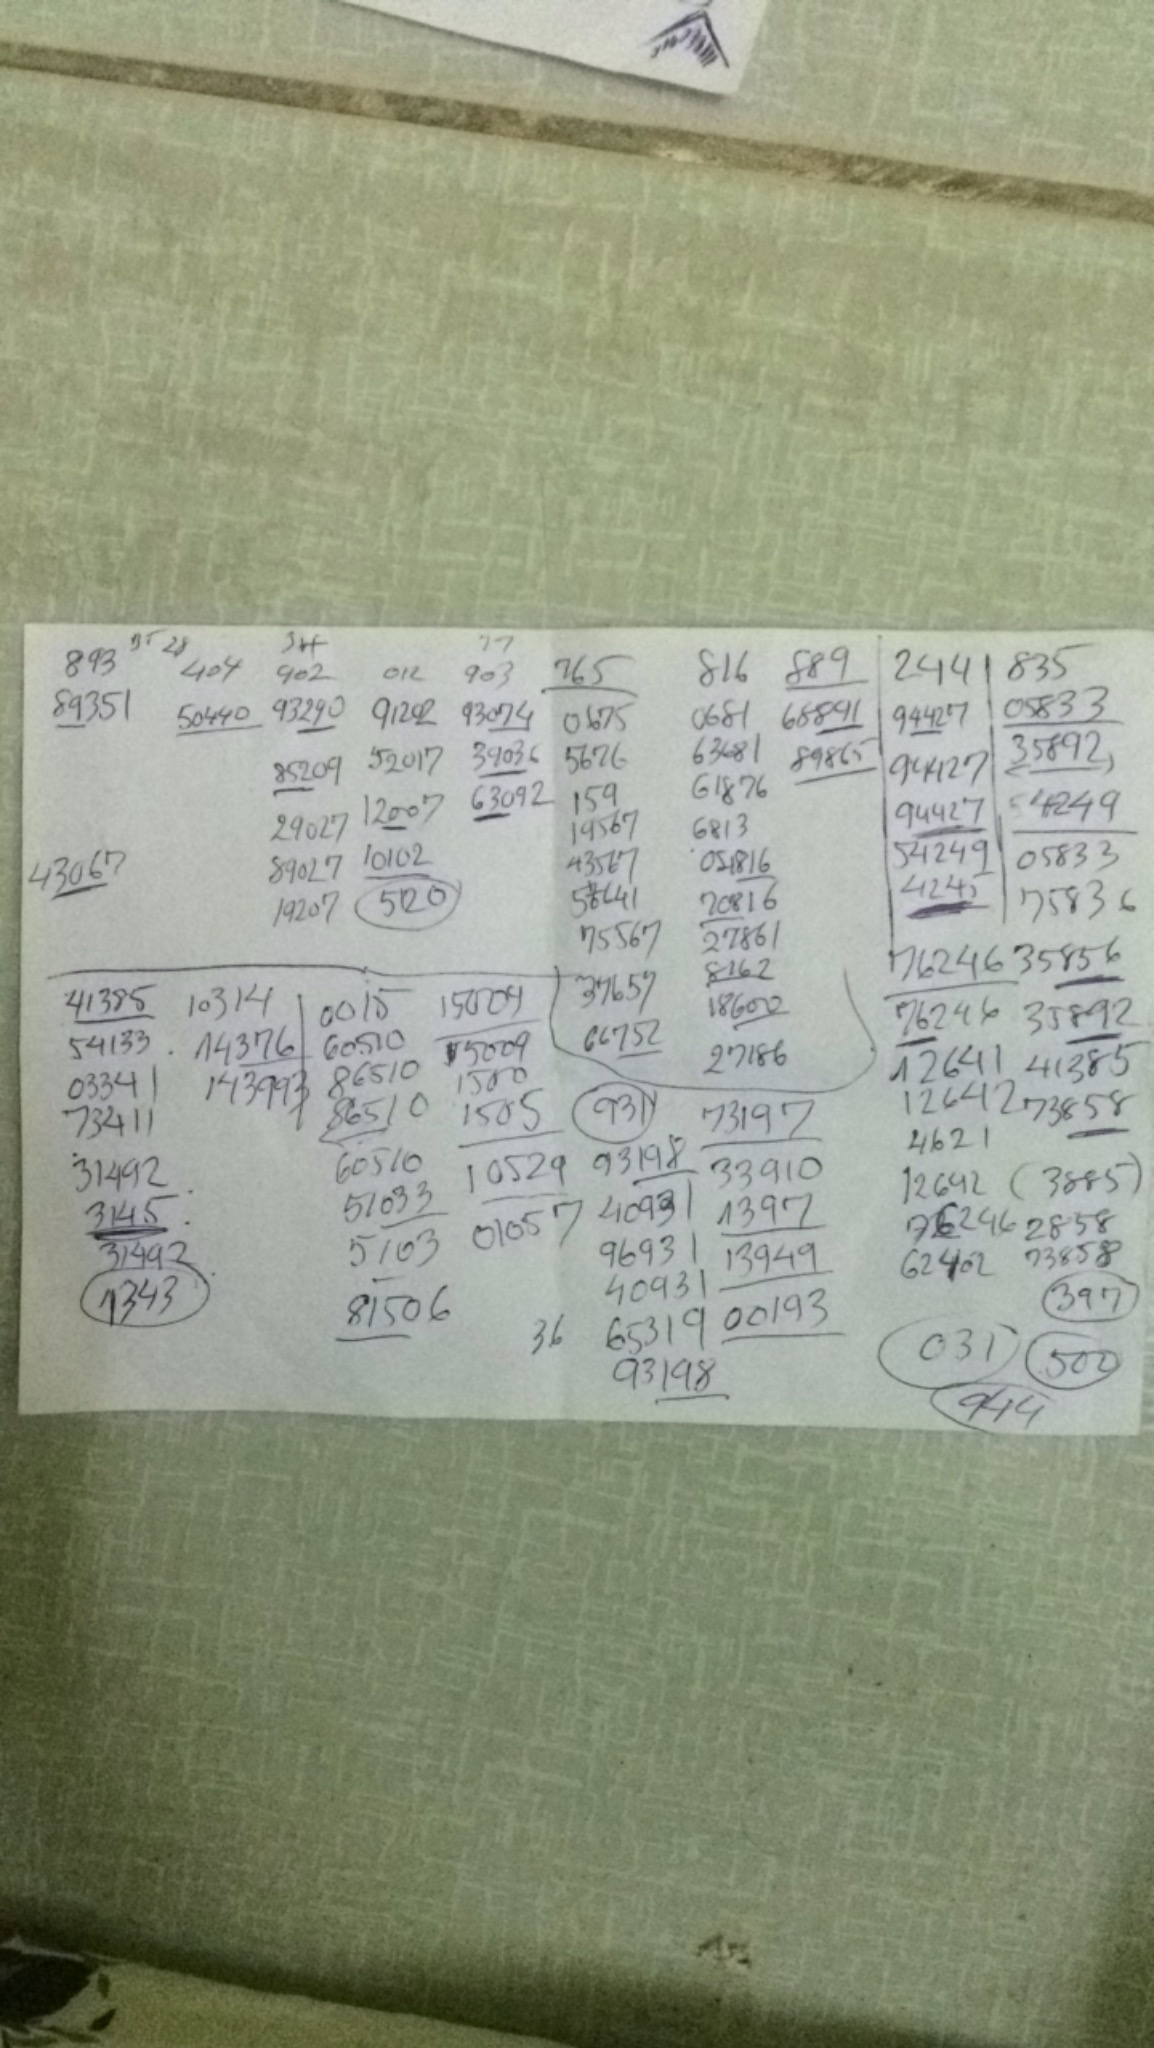 893 35 28 404 902 012 903 765 816 889 2441 835
89351 50440 93290 91202 93074 0675 0681 68891 94427 05833
85209 52017 39036 5676 63681 89865 94427 35892
29027 12007 63092 159 61876 94427 54249
19567 6813 54249 05833
43067 89027 10102 43567 4245 75836
19207 520 70816
75567 27861 76246 35856
41385 10314 0015 15009 37657 8162 76246 35892
54133 14376 60510 15009 66752 18600 12641 41385
03341 143993 86510 1500 27186 12642 73858
73411 86510 1505 931 73197 4621
31492 60510 10529 93198 33910 12642 (3885)
3145 51033 01057 40931 1397 76246 2858
31492 5103 96931 13949 62402 73858
1343 81506 40931 00193 397
36 65319 031 500
93198 944